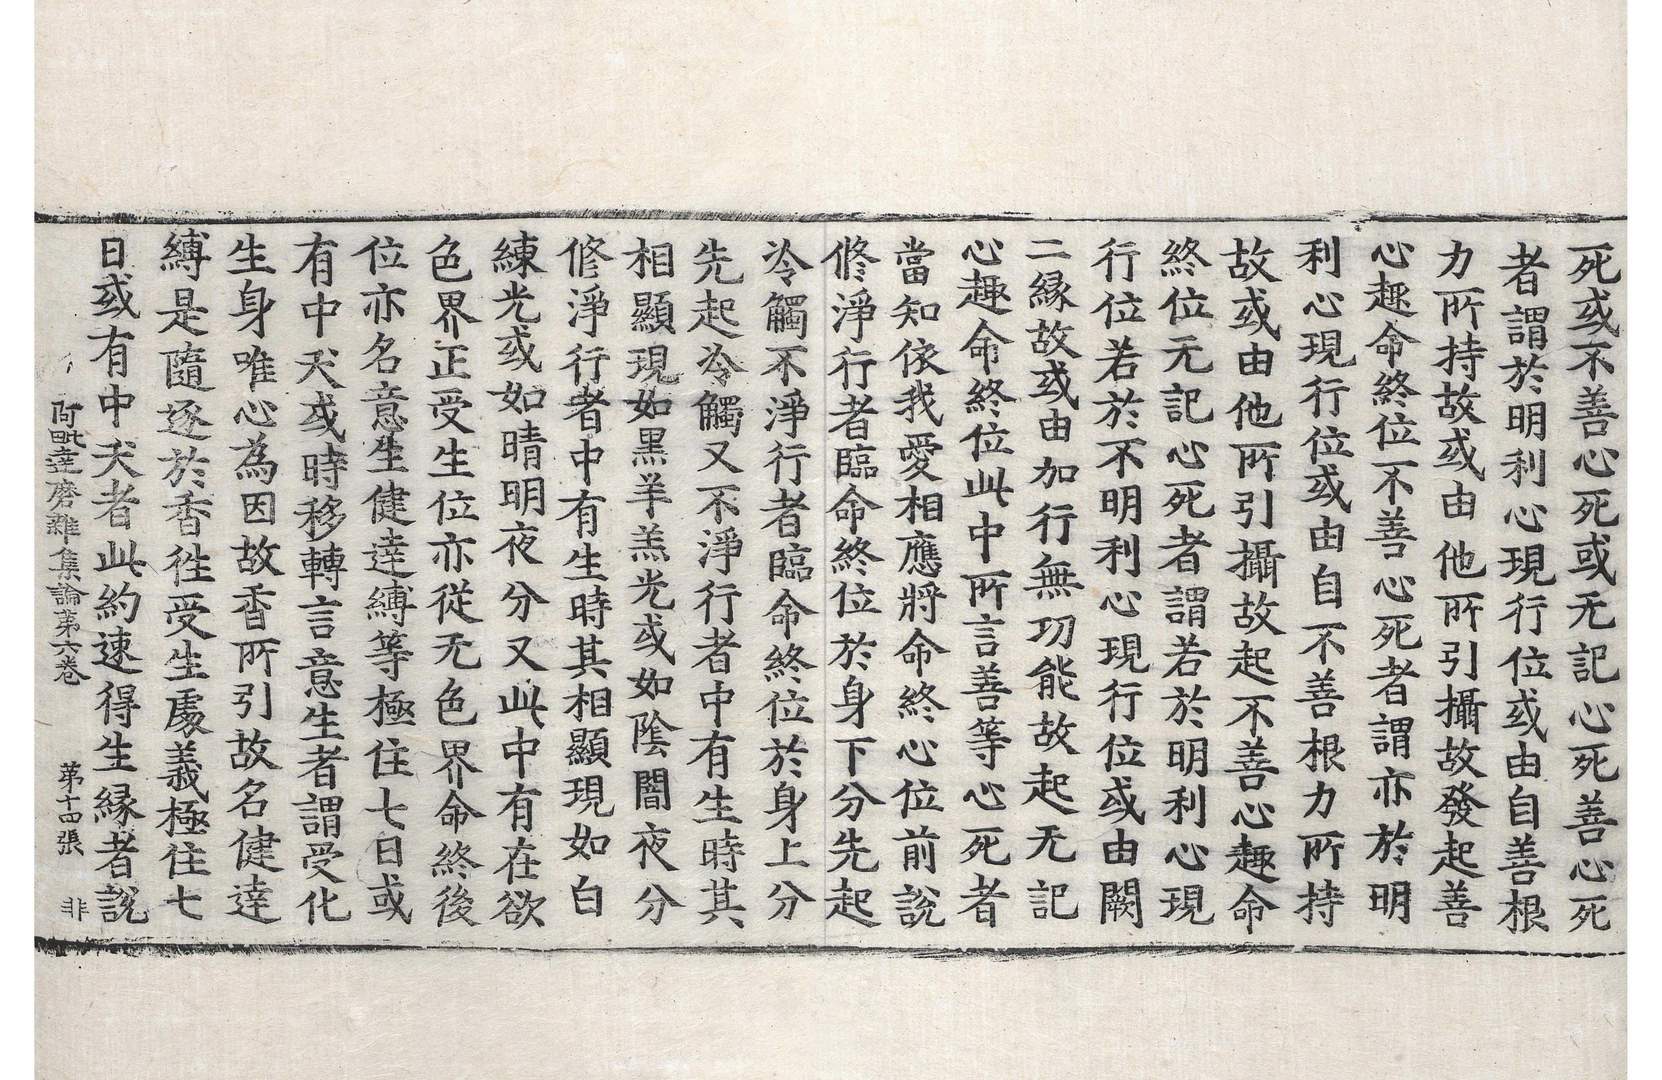 死或不善心死或无記心死善心死
者謂於明利心現行位或由自善根
力所持故或由他所引攝故發起善
心趣命終位不善心死者謂亦於明
利心現行位或由自不善根力所持
故或由他所引攝故起不善心趣命
終位无記心死者謂若於明利心現
行位若於不明利心現行位或由闕
二縁故或由加行無功能故起无記
心趣命終位此中所言善等心死者
當知依我愛相應將命終心位前說
修淨行者臨命終位於身下分先起
冷觸不淨行者臨命終位於身上分
先起冷觸又不淨行者中有生時其
相顯現如黑羊羔光或如陰闇夜分
修淨行者中有生時其相顯現如白
練光或如晴明夜分又此中有在欲
色界正受生位亦從无色界命終後
位亦名意生健達縛等極住七日或
有中夭或時移轉言意生者謂受化
生身唯心為因故香所引故名健達
縛是隨逐於香徃受生處義極住七
日或有中夭者此約速得生縁者說
阿毗達磨雜集論第六卷 第十四張 非